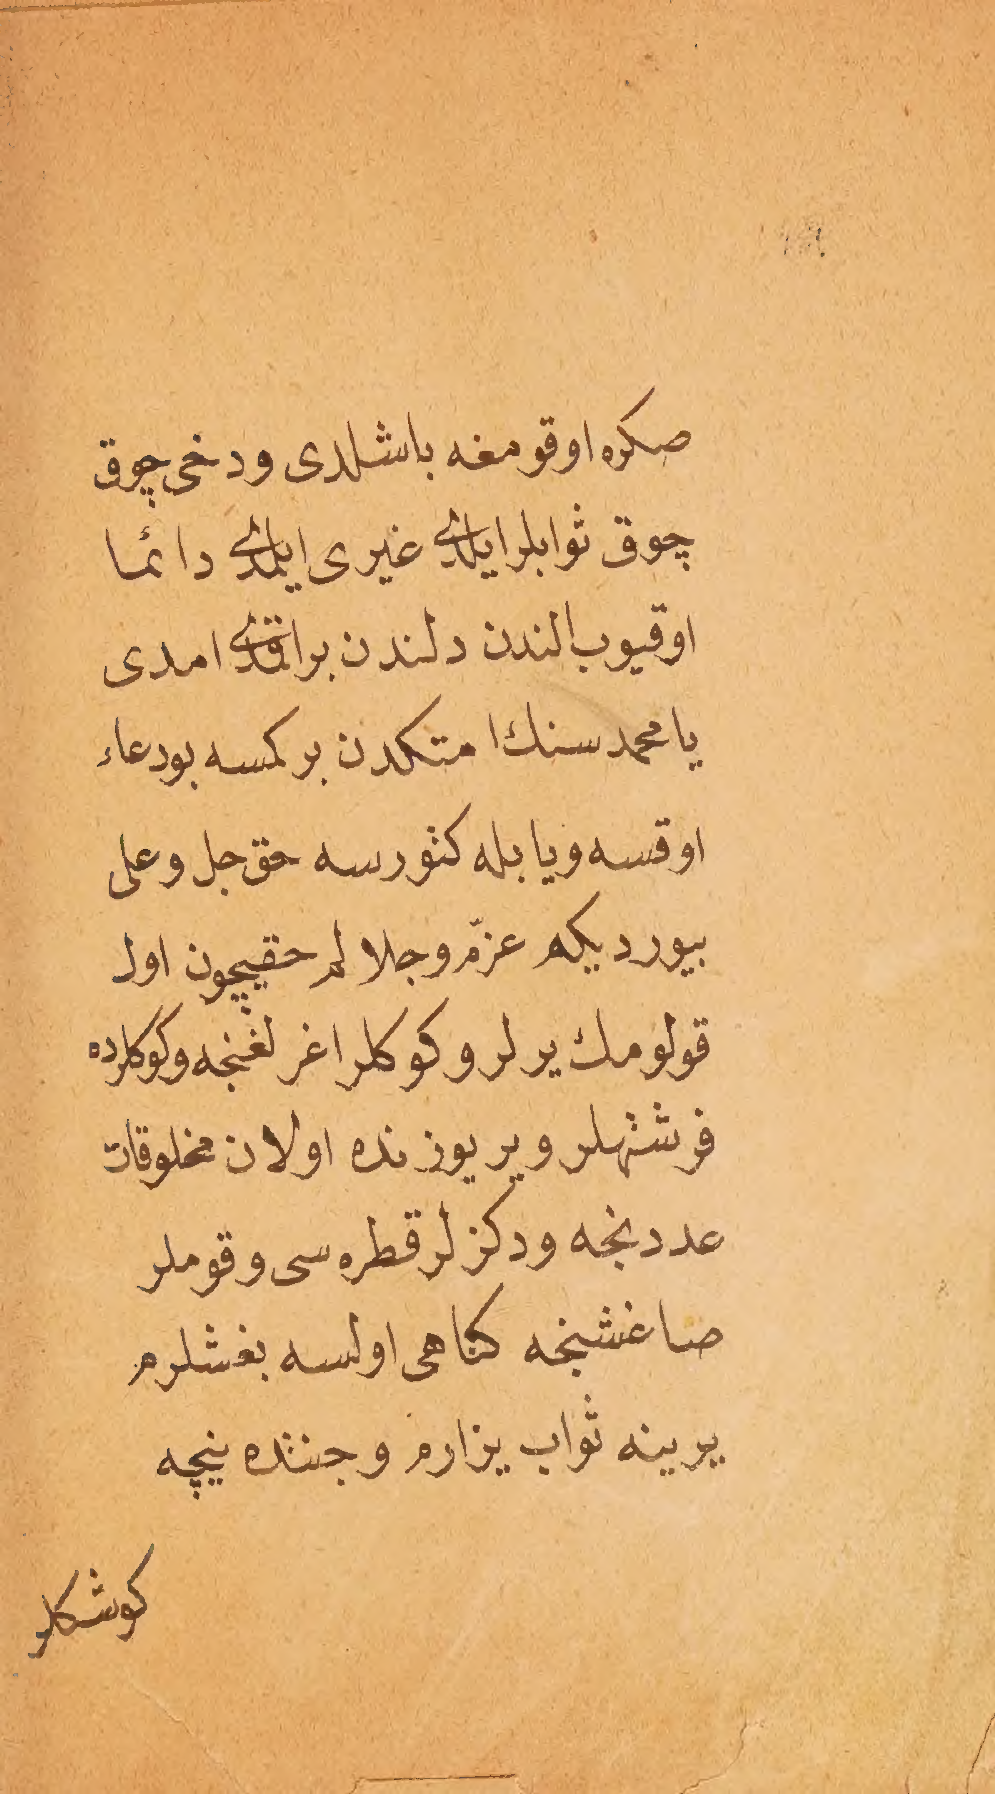 صكره اوقومغه باشلدى ودخى چوق
چوق ثوابلر ايلدى غيرى ايلمدى دائما
اوقيوب الندن دلندن براقمدى امدى
يا محمد سنك امتكدن بر كمسه بو دعاء
اوقسه ويا بله كتورسه حق جل وعلى
بيورديكم عزّم وجلالم حقيچون اول
قولومك يرلر وكوكلر اغرلغنجه وكوكلرده
فرشتهلر وير يوزنده اولان مخلوقات
عددنجه ودكزلر قطره سى وقوملر
صاغشنجه كناهى اولسه بغشلرم
يرينه ثواب يزارم وجنتده نيچه
كوشكلر